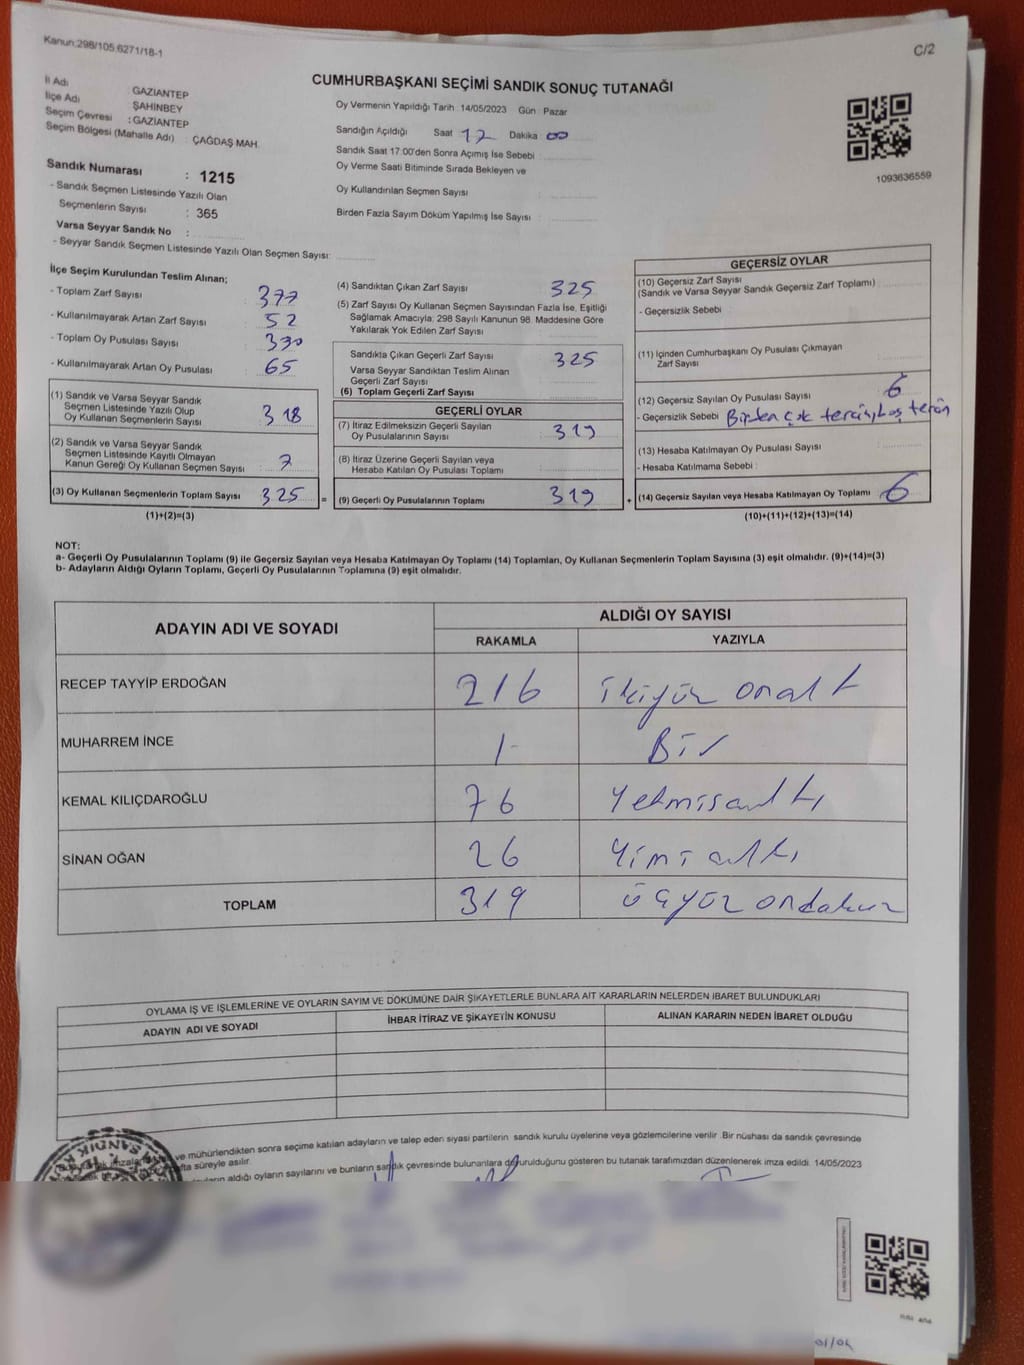 Kanun:298/105.6271/18-1
C/2
CUMHURBAŞKANI SEÇİMİ SANDIK SONUÇ TUTANAĞI
İl Adı : GAZİANTEP
İlçe Adı ŞAHİNBEY
Seçim Çevresi : GAZİANTEP
Seçim Bölgesi (Mahalle Adı) : ÇAĞDAŞ MAH.
Oy Vermenin Yapıldığı Tarih : 14/05/2023 Gün : Pazar
Sandığın Açıldığı Saat 17 Dakika 00
Sandık Saat 17:00'den Sonra Açımış İse Sebebi
Oy Verme Saati Bitiminde Sırada Bekleyen ve
Oy Kullandırılan Seçmen Sayısı
Birden Fazla Sayım Döküm Yapılmış İse Sayısı
1093636559
Sandık Numarası : 1215
- Sandık Seçmen Listesinde Yazılı Olan
Seçmenlerin Sayısı : 365
Varsa Seyyar Sandık No :
- Seyyar Sandık Seçmen Listesinde Yazılı Olan Seçmen Sayısı:
İlçe Seçim Kurulundan Teslim Alınan;
- Toplam Zarf Sayısı : 377
- Kullanılmayarak Artan Zarf Sayısı : 52
- Toplam Oy Pusulası Sayısı : 330
- Kullanılmayarak Artan Oy Pusulası : 65
(1) Sandık ve Varsa Seyyar Sandık
Seçmen Listesinde Yazılı Olup
Oy Kullanan Seçmenlerin Sayısı : 318
(2) Sandık ve Varsa Seyyar Sandık
Seçmen Listesinde Kayıtlı Olmayan
Kanun Gereği Oy Kullanan Seçmen Sayısı : 7
(3) Oy Kullanan Seçmenlerin Toplam Sayısı 325 =
(1)+(2)=(3)
(4) Sandıktan Çıkan Zarf Sayısı 325
(5) Zarf Sayısı Oy Kullanan Seçmen Sayısından Fazla İse, Eşitliği
Sağlamak Amacıyla; 298 Sayılı Kanunun 98. Maddesine Göre
Yakılarak Yok Edilen Zarf Sayısı
Sandıkta Çıkan Geçerli Zarf Sayısı 325
Varsa Seyyar Sandıktan Teslim Alınan
Geçerli Zarf Sayısı
(6) Toplam Geçerli Zarf Sayısı
GEÇERLİ OYLAR
(7) İtiraz Edilmeksizin Geçerli Sayılan
Oy Pusulalarının Sayısı 319
(8) İtiraz Üzerine Geçerli Sayılan veya
Hesaba Katılan Oy Pusulası Toplamı
(9) Geçerli Oy Pusulalarının Toplamı 319 +
GEÇERSİZ OYLAR
(10) Geçersiz Zarf Sayısı
(Sandık ve Varsa Seyyar Sandık Geçersiz Zarf Toplamı)
- Geçersizlik Sebebi
(11) İçinden Cumhurbaşkanı Oy Pusulası Çıkmayan
Zarf Sayısı
(12) Geçersiz Sayılan Oy Pusulası Sayısı 6
- Geçersizlik Sebebi Birden çok tercih,boş
(13) Hesaba Katılmayan Oy Pusulası Sayısı
- Hesaba Katılmama Sebebi :
(14) Geçersiz Sayılan veya Hesaba Katılmayan Oy Toplamı 6
(10)+(11)+(12)+(13)=(14)
NOT:
a- Geçerli Oy Pusulalarının Toplamı (9) ile Geçersiz Sayılan veya Hesaba Katılmayan Oy Toplamı (14) Toplamları, Oy Kullanan Seçmenlerin Toplam Sayısına (3) eşit olmalıdır. (9)+(14)=(3)
b- Adayların Aldığı Oyların Toplamı, Geçerli Oy Pusulalarının Toplamına (9) eşit olmalıdır.
ADAYIN ADI VE SOYADI
ALDIĞI OY SAYISI
RAKAMLA YAZIYLA
RECEP TAYYİP ERDOĞAN 216 ikiyüz onaltı
MUHARREM İNCE 1 Bir
KEMAL KILIÇDAROĞLU 76 Yetmisaltı
SİNAN OĞAN 26 Yimi altı
TOPLAM 319 üçyüz ondokuz
OYLAMA İŞ VE İŞLEMLERİNE VE OYLARIN SAYIM VE DÖKÜMÜNE DAİR ŞİKAYETLERLE BUNLARA AİT KARARLARIN NELERDEN İBARET BULUNDUKLARI
ADAYIN ADI VE SOYADI İHBAR İTİRAZ VE ŞİKAYETİN KONUSU ALINAN KARARIN NEDEN İBARET OLDUĞU
ve mühürlendikten sonra seçime katılan adayların ve talep eden siyasi partilerin sandık kurulu üyelerine veya gözlemcilerine verilir .Bir nüshası da sandık çevresinde
hafta süreyle asılır.
aldığı oyların sayılarını ve bunların sandık çevresinde bulunanlara duyurulduğunu gösteren bu tutanak tarafımızdan düzenlenerek imza edildi. 14/05/2023